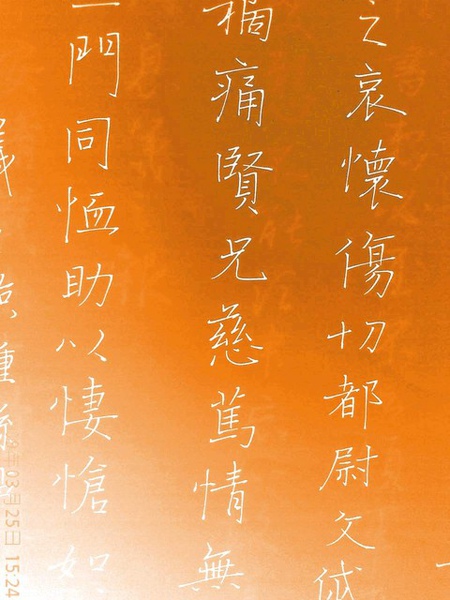 之哀懷傷切都尉文
痛賢兄慈篤情無
門同恤助以悽愴如
03月25日 15:24